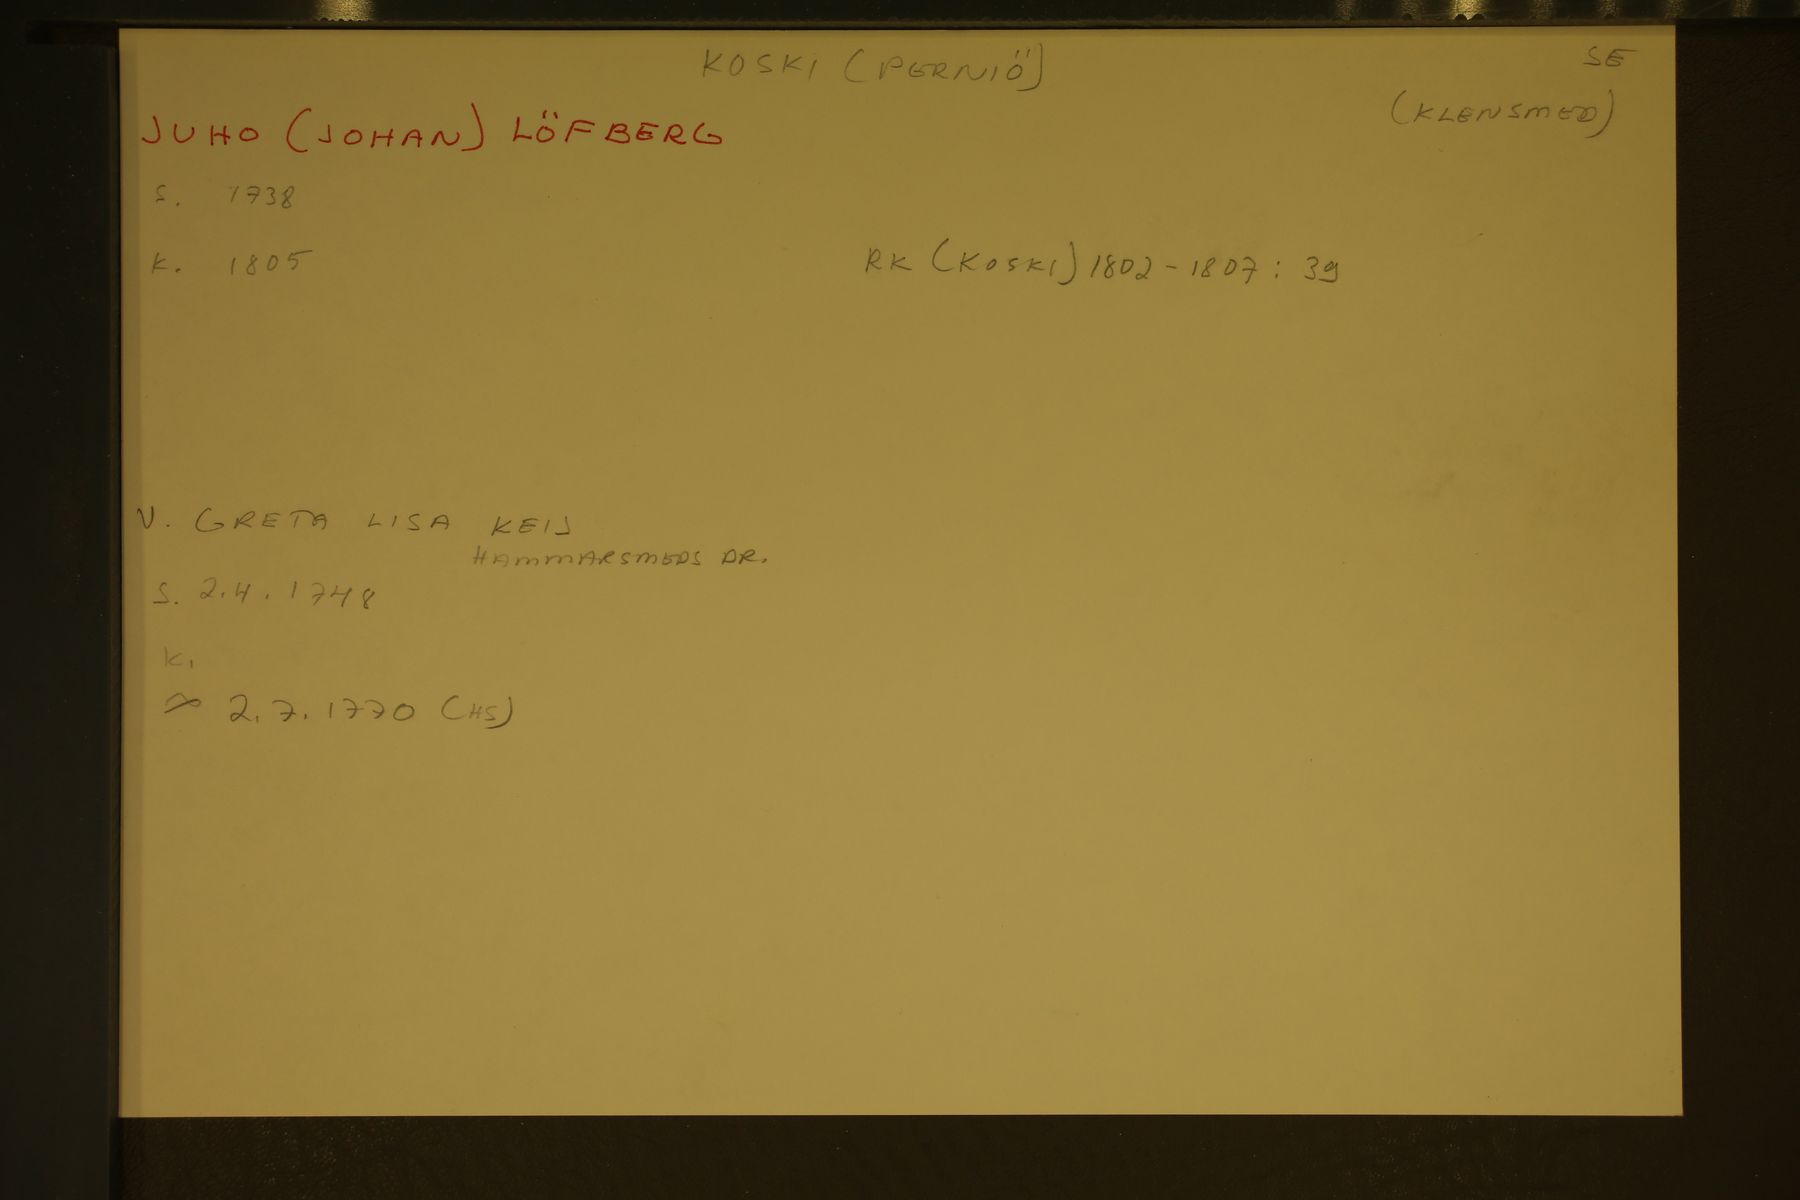 KOSKI (PERNIÖ)
SE
(KLENSMED)
JUHO (JOHAN) LÖFBERG
S. 1738
K. 1805
RK (KOSKI) 1802-1807: 39
V. GRETA LISA KEIJ
HAMMARSMEDS DR.
S. 2.4.1748
K.
∞ 2.7.1770 (HS)